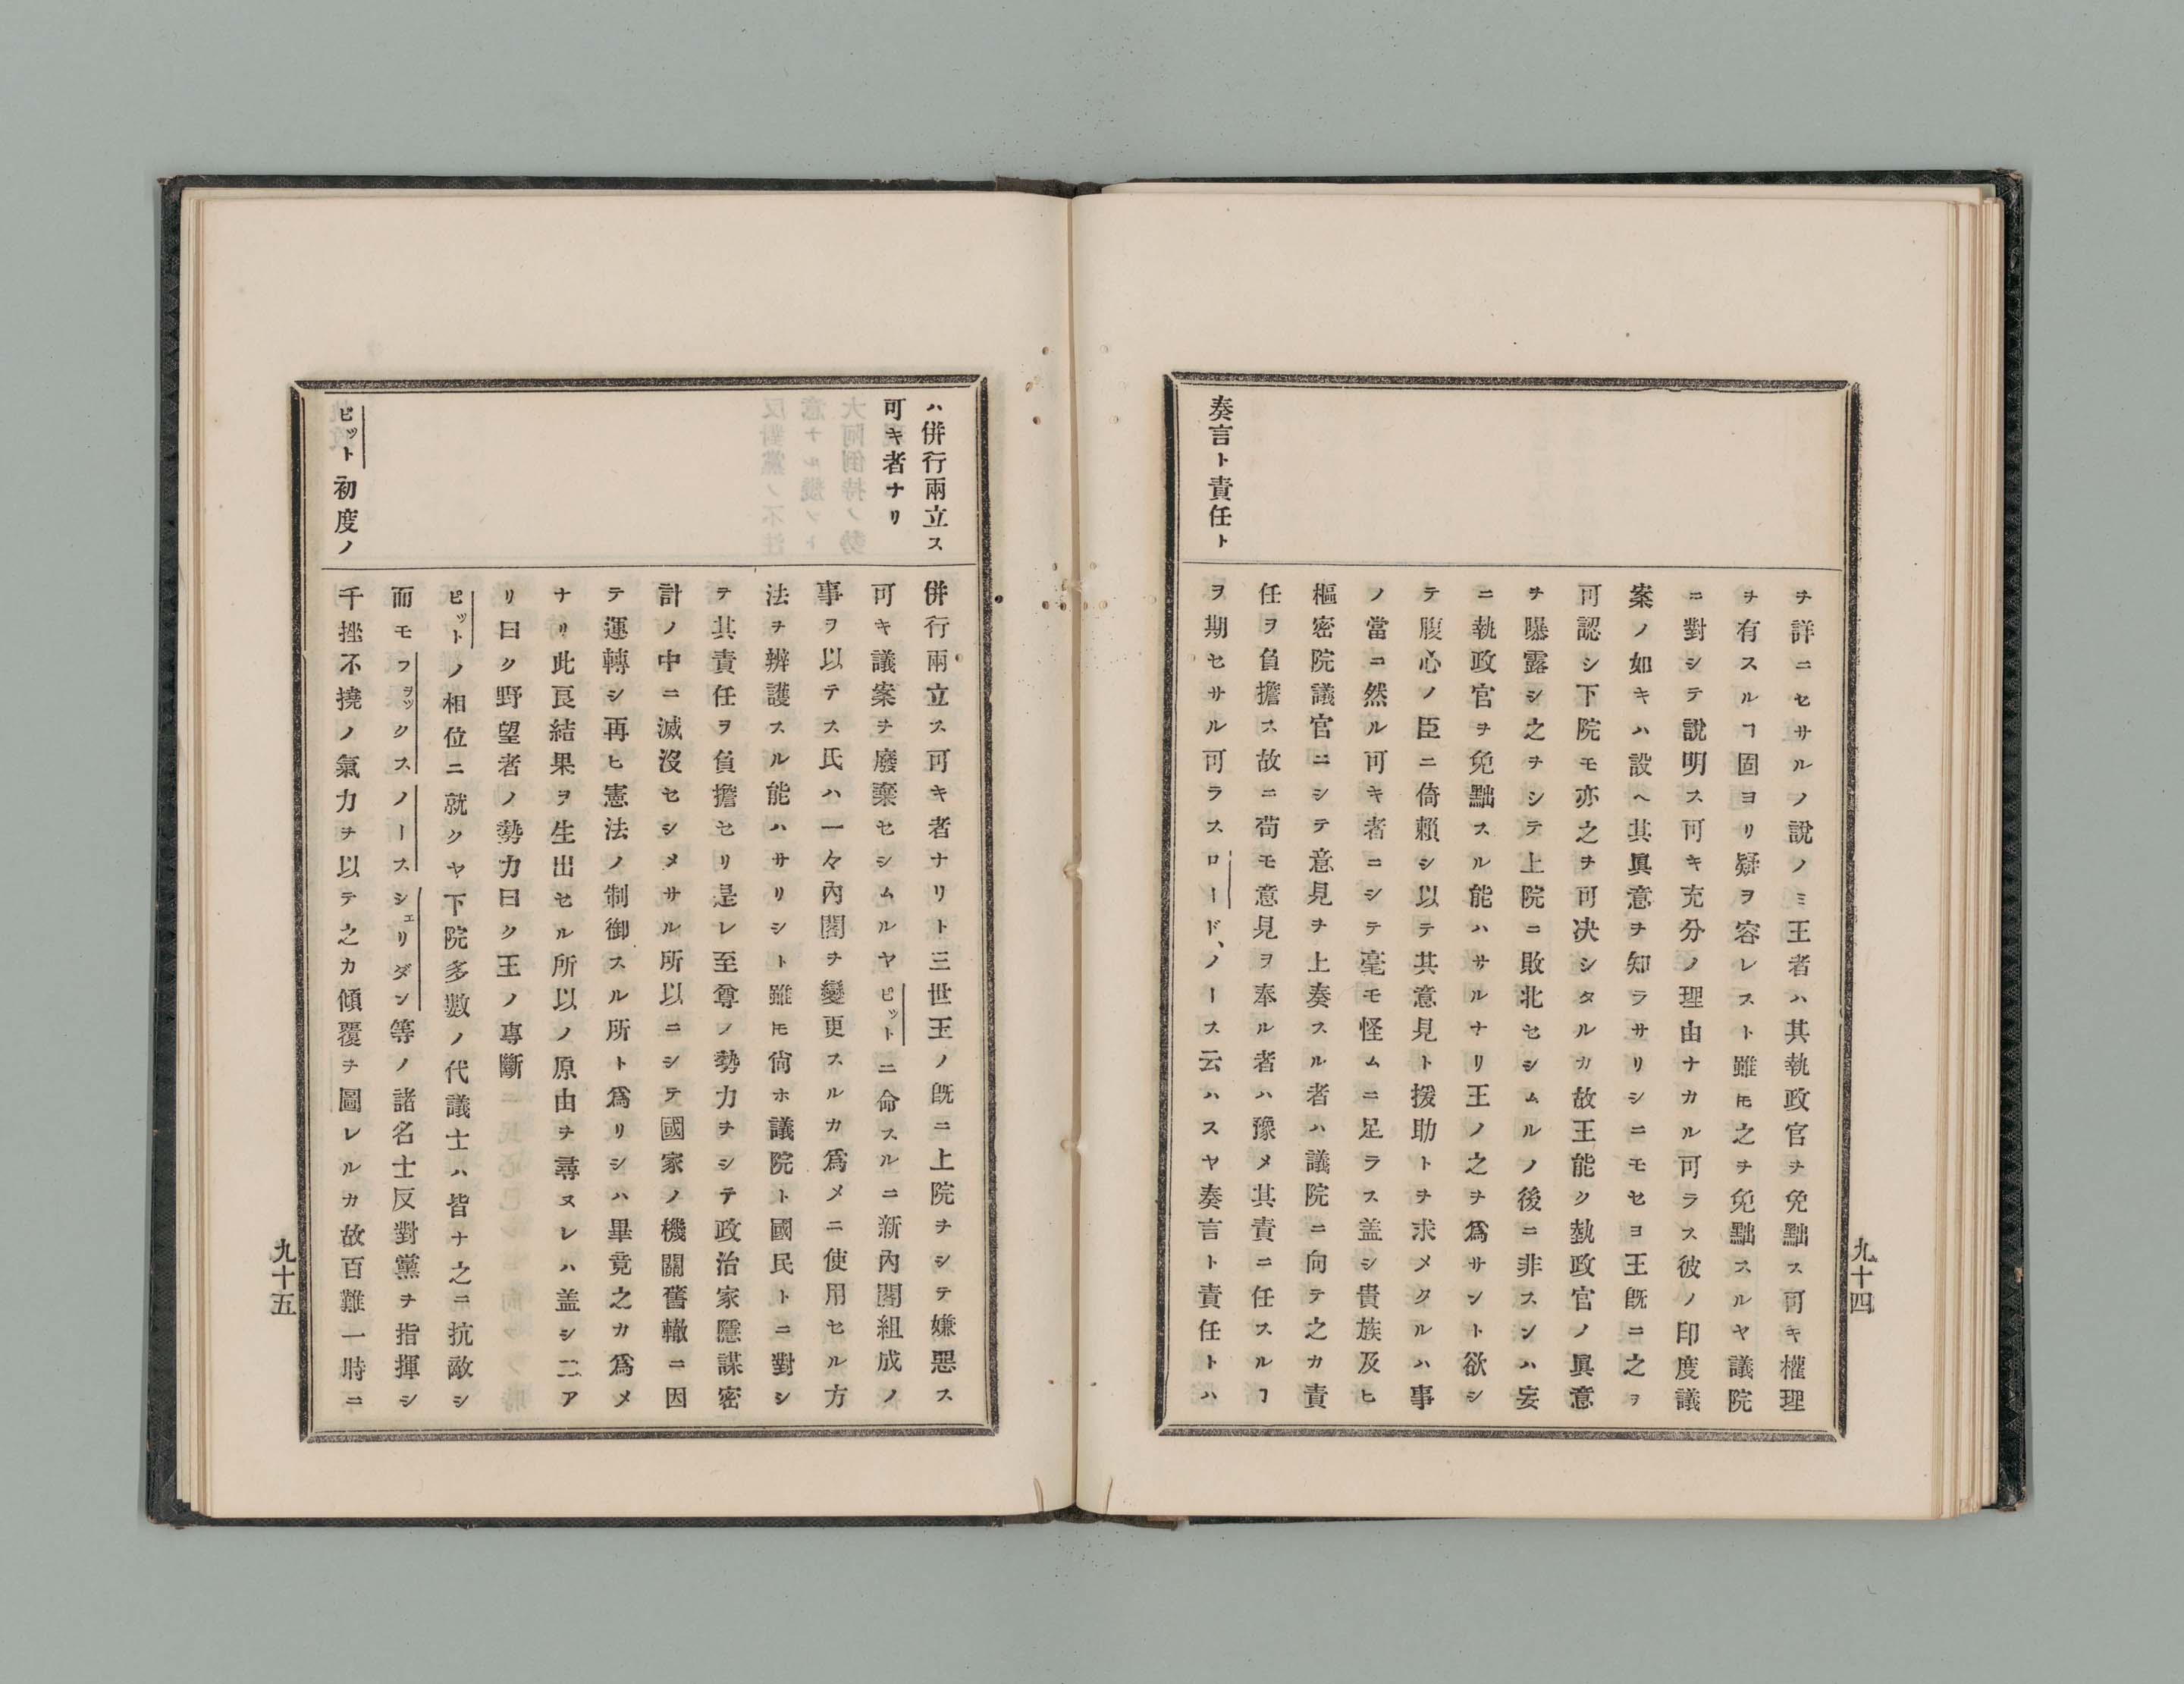 奏言ト責任ト
ヲ詳ニセサルノ說ノミ王者ハ其執政官ヲ免黜ス可キ權理
ヲ有スルヿ固ヨリ疑ヲ容レスト雖𪜈之ヲ免黜スルヤ議院
ニ對シテ說明ス可キ充分ノ理由ナカル可ラス彼ノ印度議
案ノ如キハ設ヘ其眞意ヲ知ラサリシニモセヨ王旣ニ之ヲ
可認シ下院モ亦之ヲ可决シタルカ故王能ク執政官ノ眞意
ヲ曝露シ之ヲシテ上院ニ敗北セシムルノ後ニ非スンハ妄
ニ執政官ヲ免黜スル能ハサルナリ王ノ之ヲ爲サント欲シ
テ腹心ノ臣ニ倚賴シ以テ其意見ト援助トヲ求メクルハ事
ノ當ニ然ル可キ者ニシテ毫モ怪ムニ足ラス盖シ貴族及ヒ
樞密院議官ニシテ意見ヲ上奏スル者ハ議院ニ向テ之カ責
任ヲ負擔ス故ニ苟モ意見ヲ奉ル者ハ豫メ其責ニ任スルヿ
ヲ期セサル可ラスロード、ノース云ハスヤ奏言ト責任トハ
九十四
ハ併行兩立ス
可キ者ナリ
ピット初度ノ
併行兩立ス可キ者ナリト三世王ノ旣ニ上院ヲシテ嫌惡ス
可キ議案ヲ廢棄セシムルヤピットニ命スルニ新內閣組成ノ
事ヲ以テス氏ハ一々內閣ヲ變更スルカ爲メニ使用セル方
法ヲ辨護スル能ハサリシト雖𪜈尙ホ議院ト國民トニ對シ
テ其責任ヲ負擔セリ是レ至尊ノ勢力ヲシテ政治家隱謀密
計ノ中ニ滅沒セシメサル所以ニシテ國家ノ機關舊轍ニ因
テ運轉シ再ヒ憲法ノ制御スル所ト爲リシハ畢竟之カ爲メ
ナリ此良結果ヲ生出セル所以ノ原由ヲ尋ヌレハ盖シ二ア
リ曰ク野望者ノ勢力曰ク王ノ專斷
ピットノ相位ニ就クヤ下院多數ノ代議士ハ皆ナ之ニ抗敵シ
而モフヲックスノースシェリダン等ノ諸名士反對黨ヲ指揮シ
千挫不撓ノ氣力ヲ以テ之カ傾覆ヲ圖レルカ故百難一時ニ
九十五